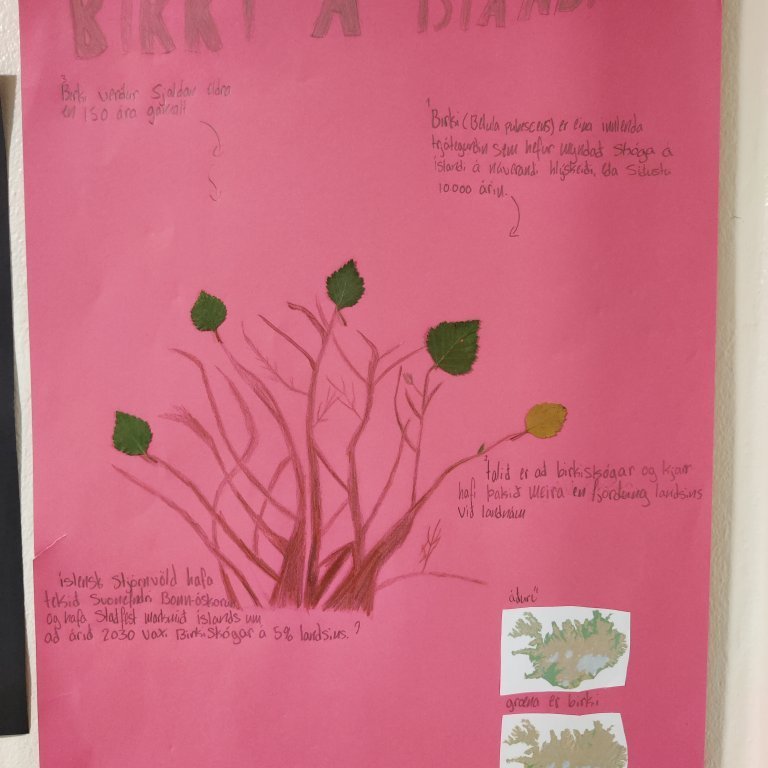 BIRKI Á ÍSLANDI
3
Birki verður sjaldan eldra
en 150 ára gamalt
1
Birki (Betula pubescens) er eina innlenda
trjátegundin sem hefur myndað skóga á
Íslandi á núverandi hlýskeiði, eða síðustu
10.000 árin.
2
talið er að birkiskógar og kjarr
hafi þakið meira en fjórðung landsins
við landnám
íslensk stjórnvöld hafa
tekið svonefndri Bonn-áskorun
og hafa staðfest markmið íslands um
að árið 2030 vaxi Birkiskógar á 5% landsins.
áður
græna er birki